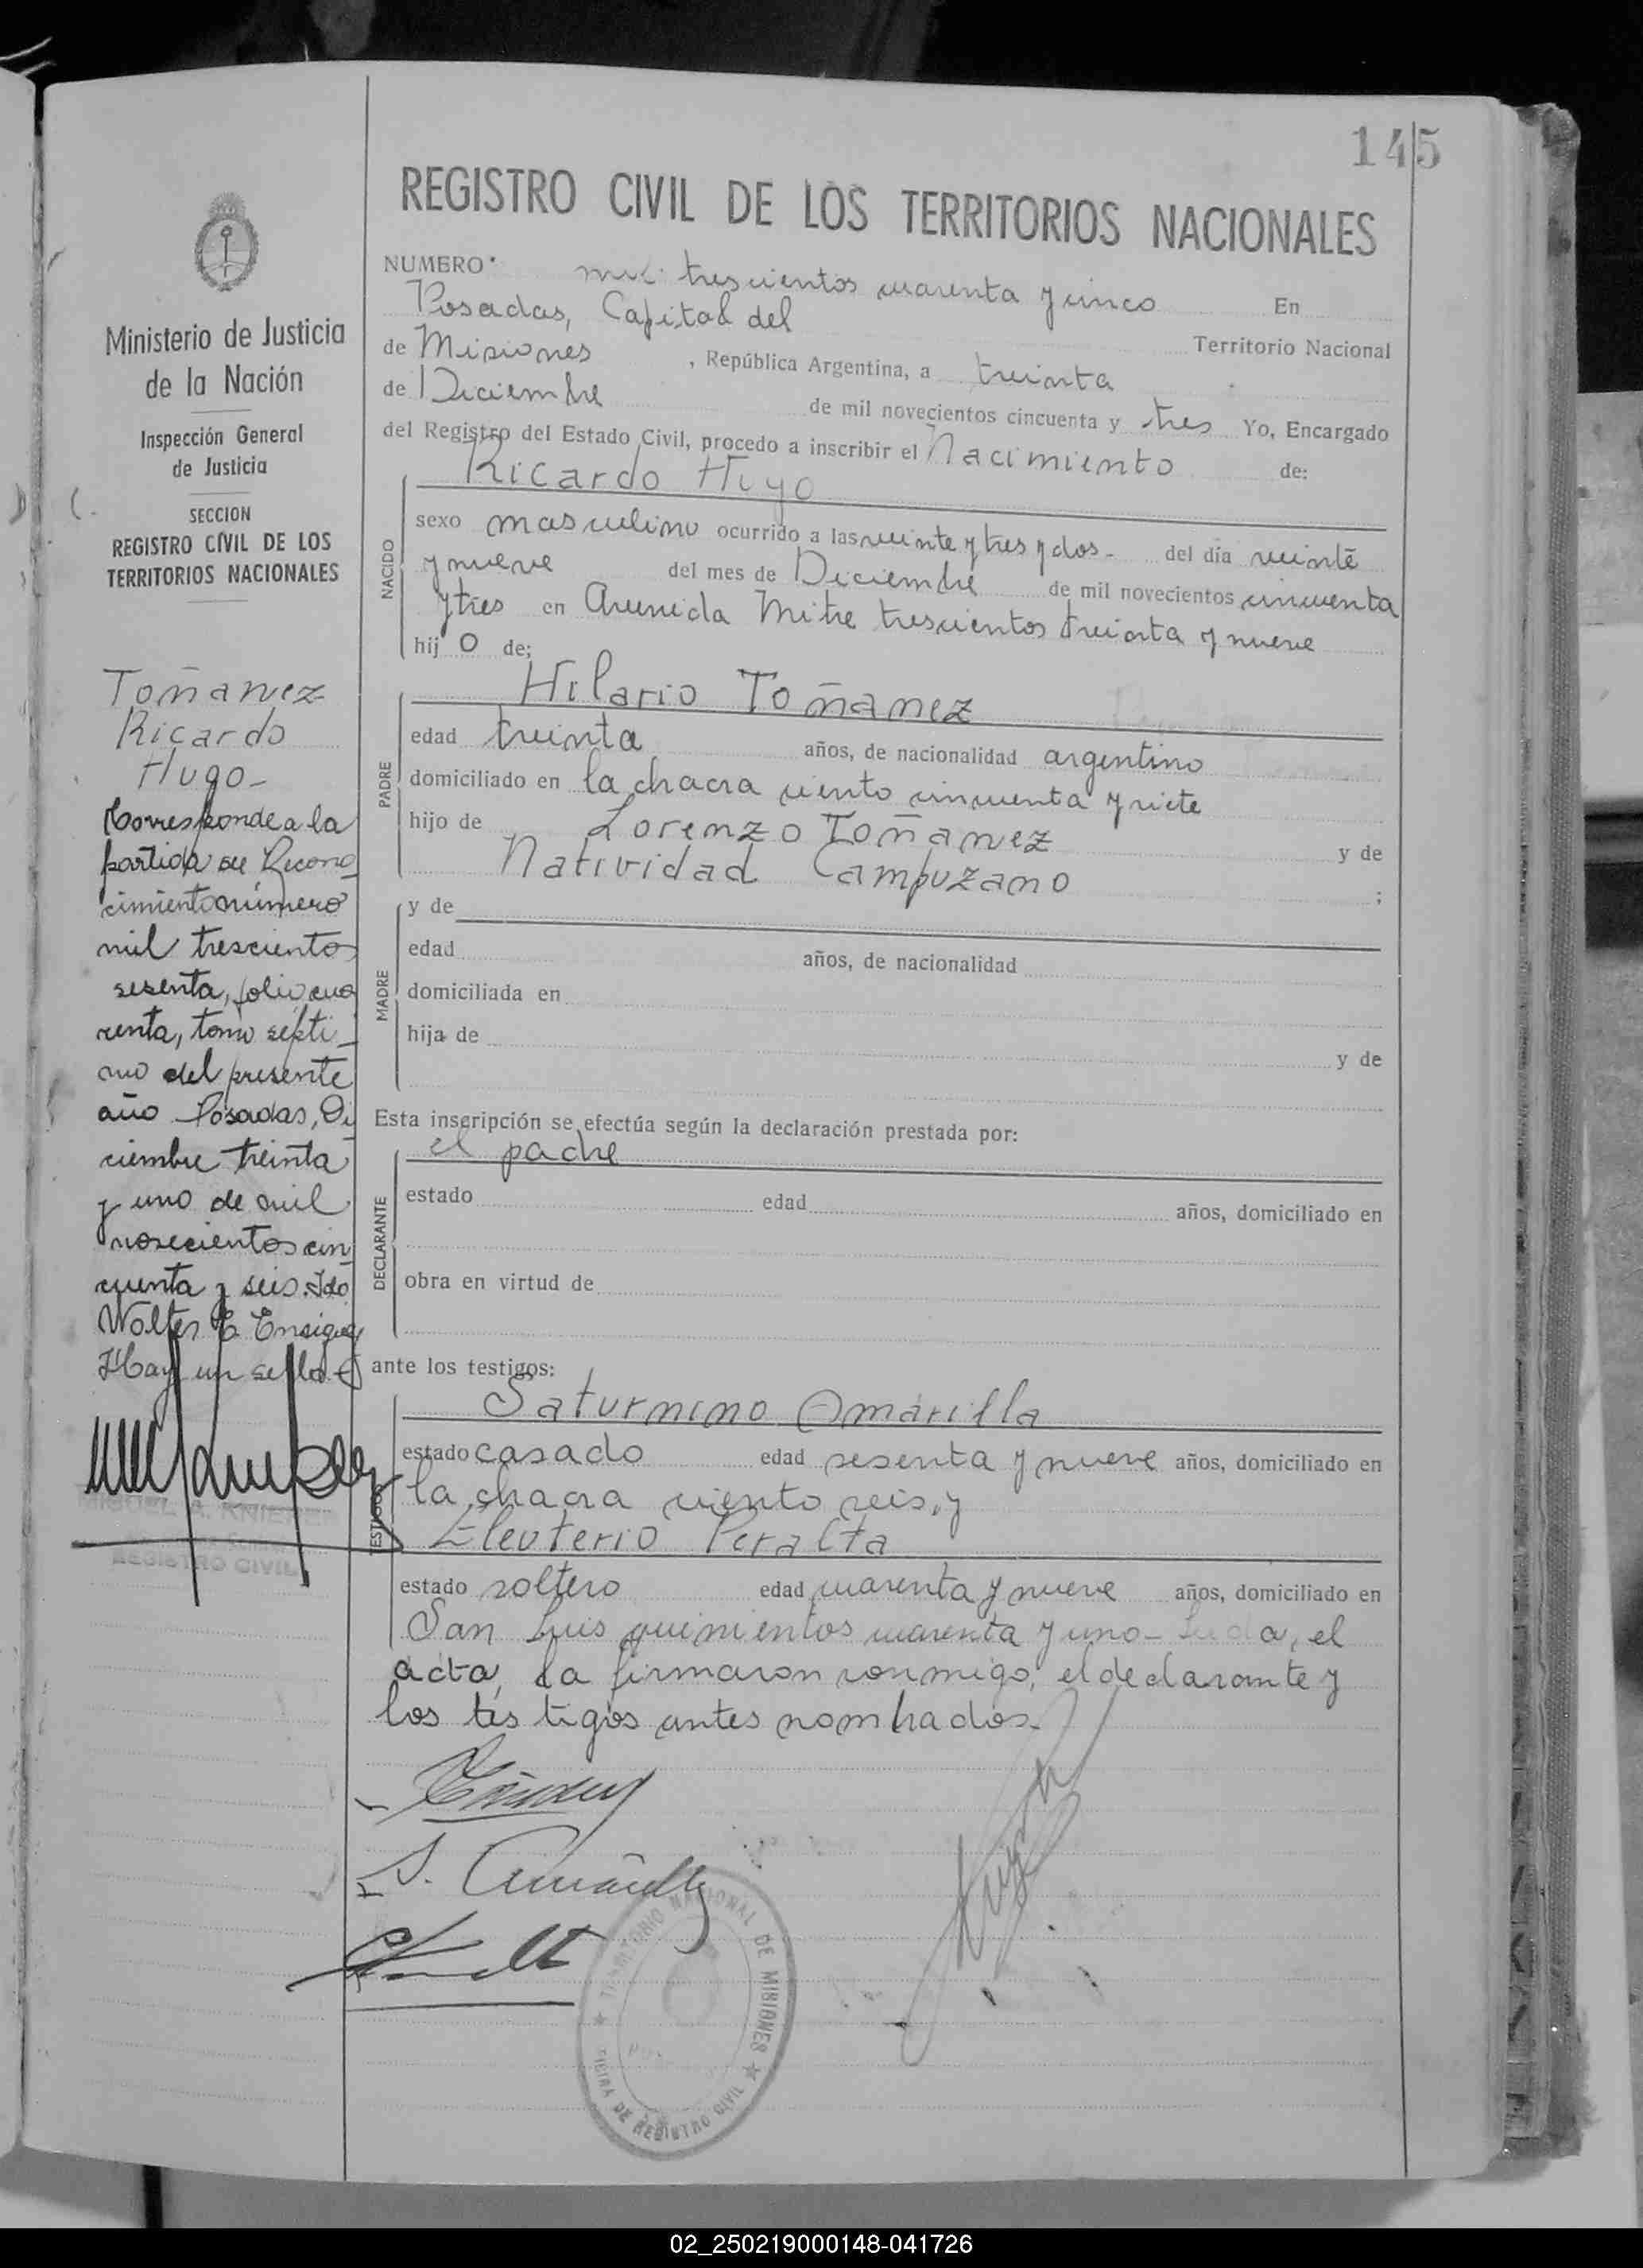 145
REGISTRO CIVIL DE LOS TERRITORIOS NACIONALES
NUMERO mil trescientos cuarenta y cinco En
Posadas, Capital del Territorio Nacional
de Misiones, República Argentina, a treinta
de Diciembre de mil novecientos cincuenta y tres Yo, Encargado
del Registro del Estado Civil, procedo a inscribir el Nacimiento de:
Ricardo Hugo
NACIDO
sexo masculino ocurrido a las veinte y tres y dos- del día veinte
y nueve del mes de Diciembre de mil novecientos cincuenta
y tres en Avenida Mitre trescientos treinta y nueve
hij o de;
Hilario Toñanez
PADRE
edad treinta años, de nacionalidad argentino
domiciliado en la chacra ciento cincuenta y siete
hijo de Lorenzo Toñanez y de
Natividad Campuzano ;
MADRE
y de
edad años, de nacionalidad
domiciliada en
hija de y de
Esta inscripción se efectúa según la declaración prestada por:
el padre
DECLARANTE
estado edad años, domiciliado en
obra en virtud de
ante los testigos:
Saturnino Amarilla
TESTIGOS
estado casado edad sesenta y nueve años, domiciliado en
la chacra ciento seis, y
Eleuterio Peralta
estado soltero edad cuarenta y nueve años, domiciliado en
San Luis quinientos cuarenta y uno- Leida, el
acta, la firmaron conmigo, el declarante y
los testigos antes nombrados.-
S. Amarilla
TERRITORIO NACIONAL DE MISIONES
OFICINA DE REGISTRO CIVIL
Ministerio de Justicia
de la Nación
Inspección General
de Justicia
SECCION
REGISTRO CIVIL DE LOS
TERRITORIOS NACIONALES
Toñanez
Ricardo
Hugo-
Corresponde a la
partida de Recono
cimiento número
mil trescientos
sesenta, folio cua
renta, tomo sépti
mo del presente
año Posadas, Di
ciembre treinta
y uno de mil
novecientos cin
cuenta y seis. Fdo
Walter E.
Hay un sello
MIGUEL A.
REGISTRO CIVIL
02_250219000148-041726